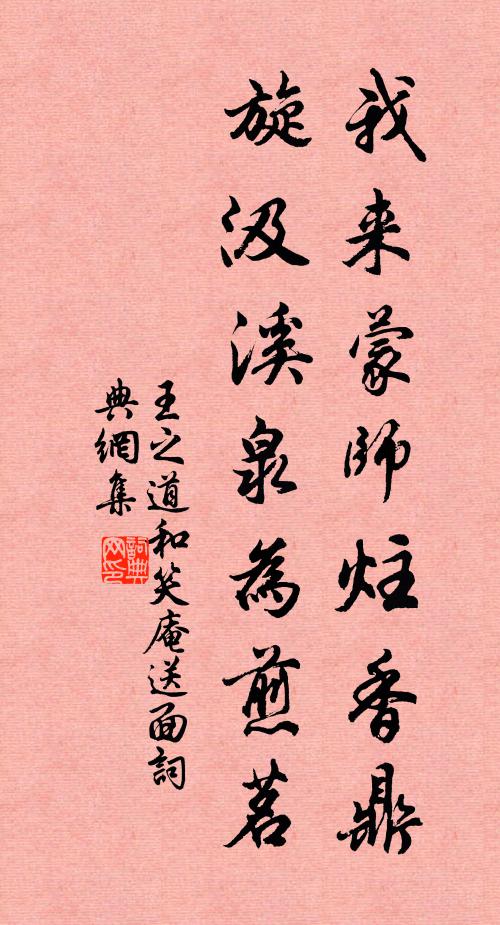 我来蒙師炷香鼎
旋汲溪泉為煎茗
王之道和笑庵送面詞
典網集
詞典网印